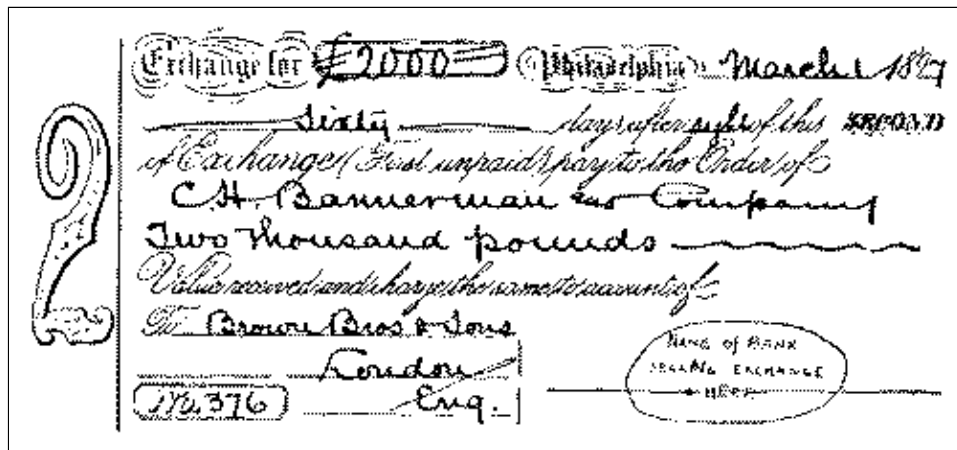 Exchange for £2000 Philadelphia March 1 1897
Sixty days after sight of this SECOND
of Exchange (First unpaid) pay to the Order of
C.H. Bannerman and Company
Two thousand pounds
Value received and charge the same to account of
To Brown Bros & Sons
London
No. 376 Eng.
NAME OF BANK
SELLING EXCHANGE
HERE